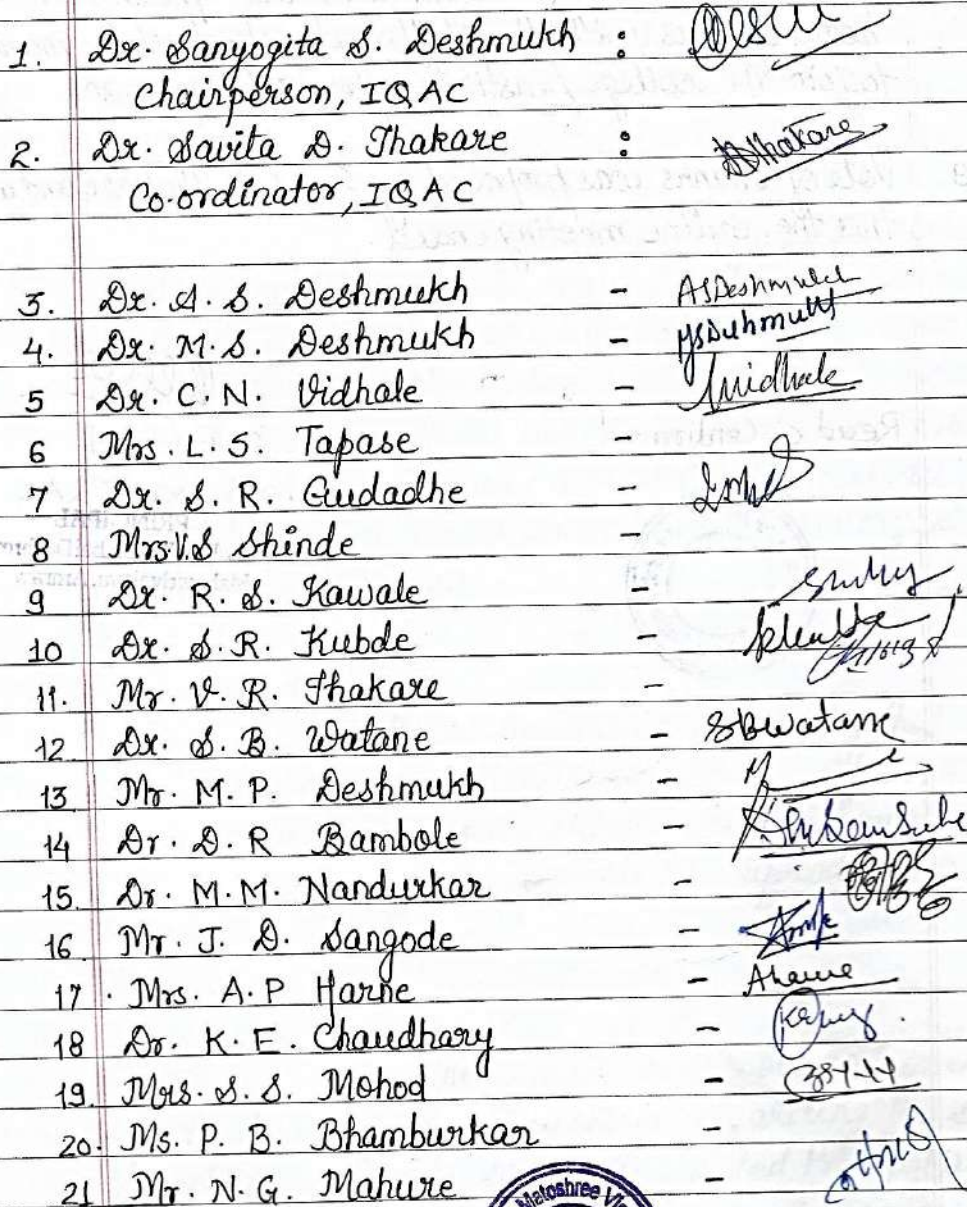 1. Dr. Sanyogita S. Deshmukh :
Chairperson, IQAC
2. Dr. Savita D. Thakare : SDThakare
Co-ordinator, IQAC
3. Dr. A. S. Deshmukh - ASDeshmukh
4. Dr. M. S. Deshmukh - MSDeshmukh
5 Dr. C. N. Vidhale - Vidhale
6 Mrs. L. S. Tapase -
7 Dr. S. R. Gudadhe -
8 Mrs. V. S Shinde -
9 Dr. R. S. Kawale -
10 Dr. S. R. Kubde -
11. Mr. V. R. Thakare -
12 Dr. S. B. Watane - SBWatane
13 Mr. M. P. Deshmukh -
14 Dr. D. R Bambole -
15. Dr. M. M. Nandurkar -
16 Mr. J. D. Sangode -
17. Mrs. A. P Harne - Aharne
18 Dr. K. E. Chaudhary -
19. Mrs. S. S. Mohod -
20. Ms. P. B. Bhamburkar -
21 Mr. N. G. Mahure -
Matoshree